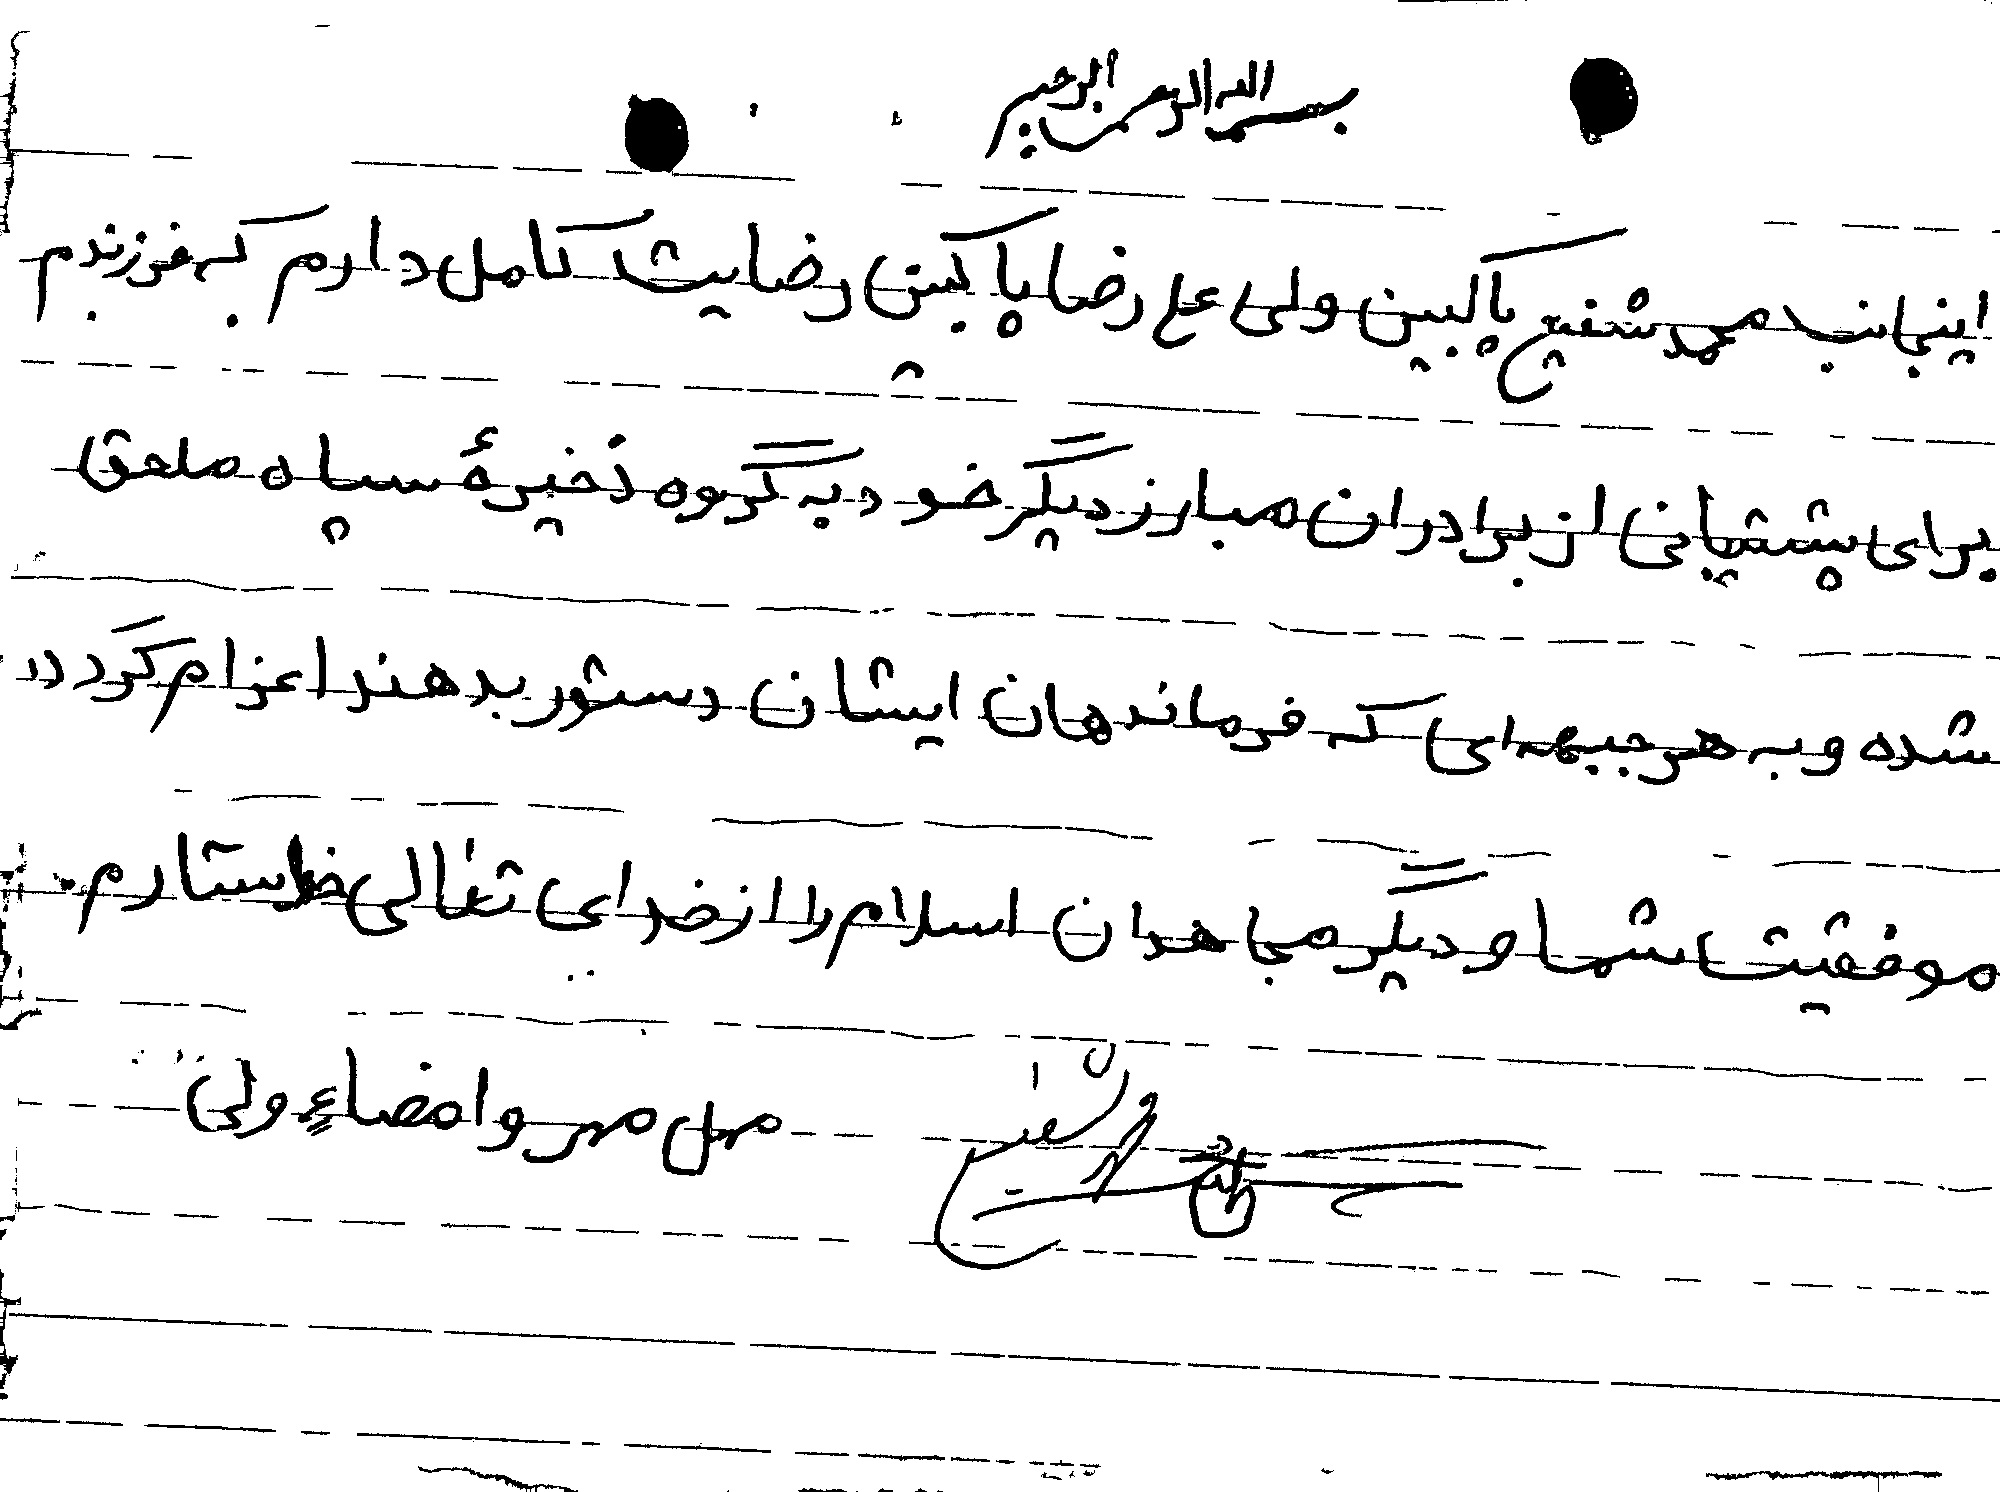 بسم الله الرحمن الرحیم
اینجانب محمد شفیع پاکبین ولی علی رضا پاکبین رضایت کامل دارم که فرزندم
برای پشتیبانی از برادران مبارز دیگر خود به گروه ذخیرهٔ سپاه ملحق
شده و به هر جبهه‌ای که فرماندهان ایشان دستور بدهند اعزام گردد
موفقیت شما و دیگر مجاهدان اسلام را از خدای تعالی خواستارم.
محل مهر و امضاء ولی